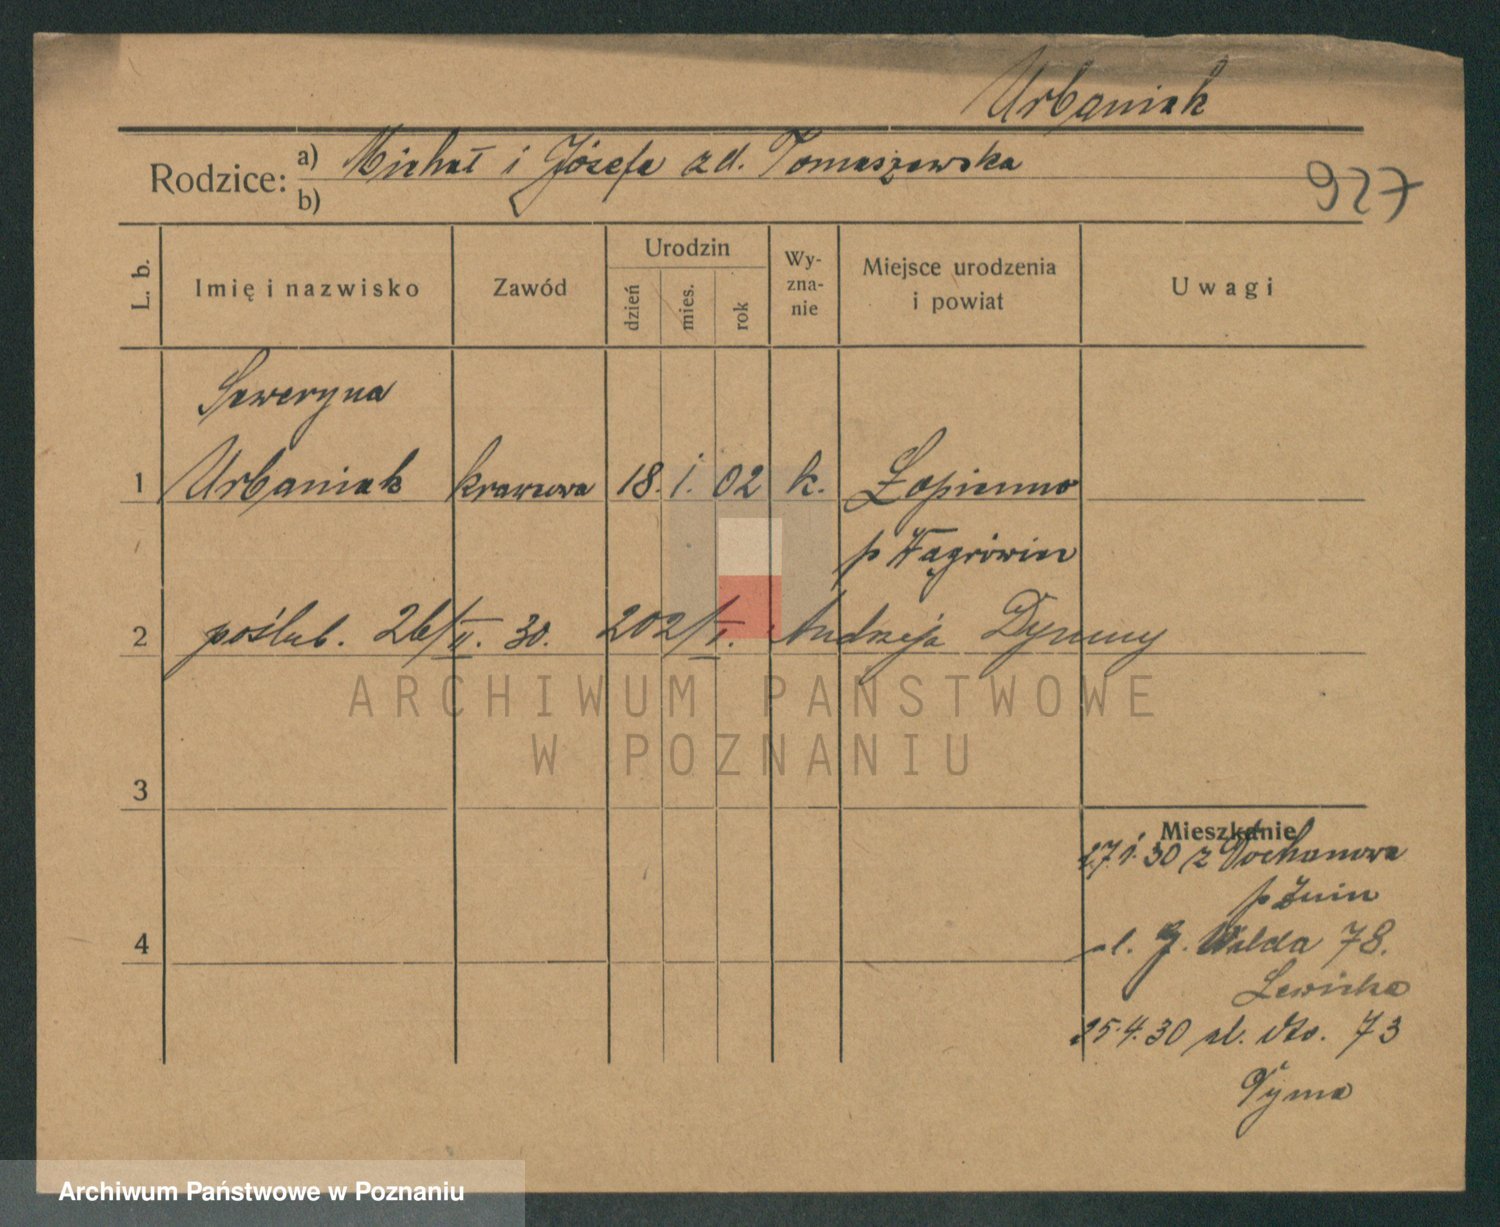 Urbaniak
Rodzice: a) Michał i Józefa zd. Tomaszewska
b)
927
L. b.
Imię i nazwisko
Zawód
Urodzin
dzień
mies.
rok
Wy-
zna-
nie
Miejsce urodzenia
i powiat
Uwagi
Seweryna
1 Urbaniak krawcowa 18. i. 02 k. Łopienno
p Wągrówiec
2 poślub. 26/II. 30. 202/I. Andrzeja Dymny
ARCHIWUM PAŃSTWOWE
W POZNANIU
3
Mieszkanie
27.1.30 z
p Żnin
4
ul. G. Wilda 78.
Lewicka
25.4.30 ul. dto. 73
Tyma
Archiwum Państwowe w Poznaniu